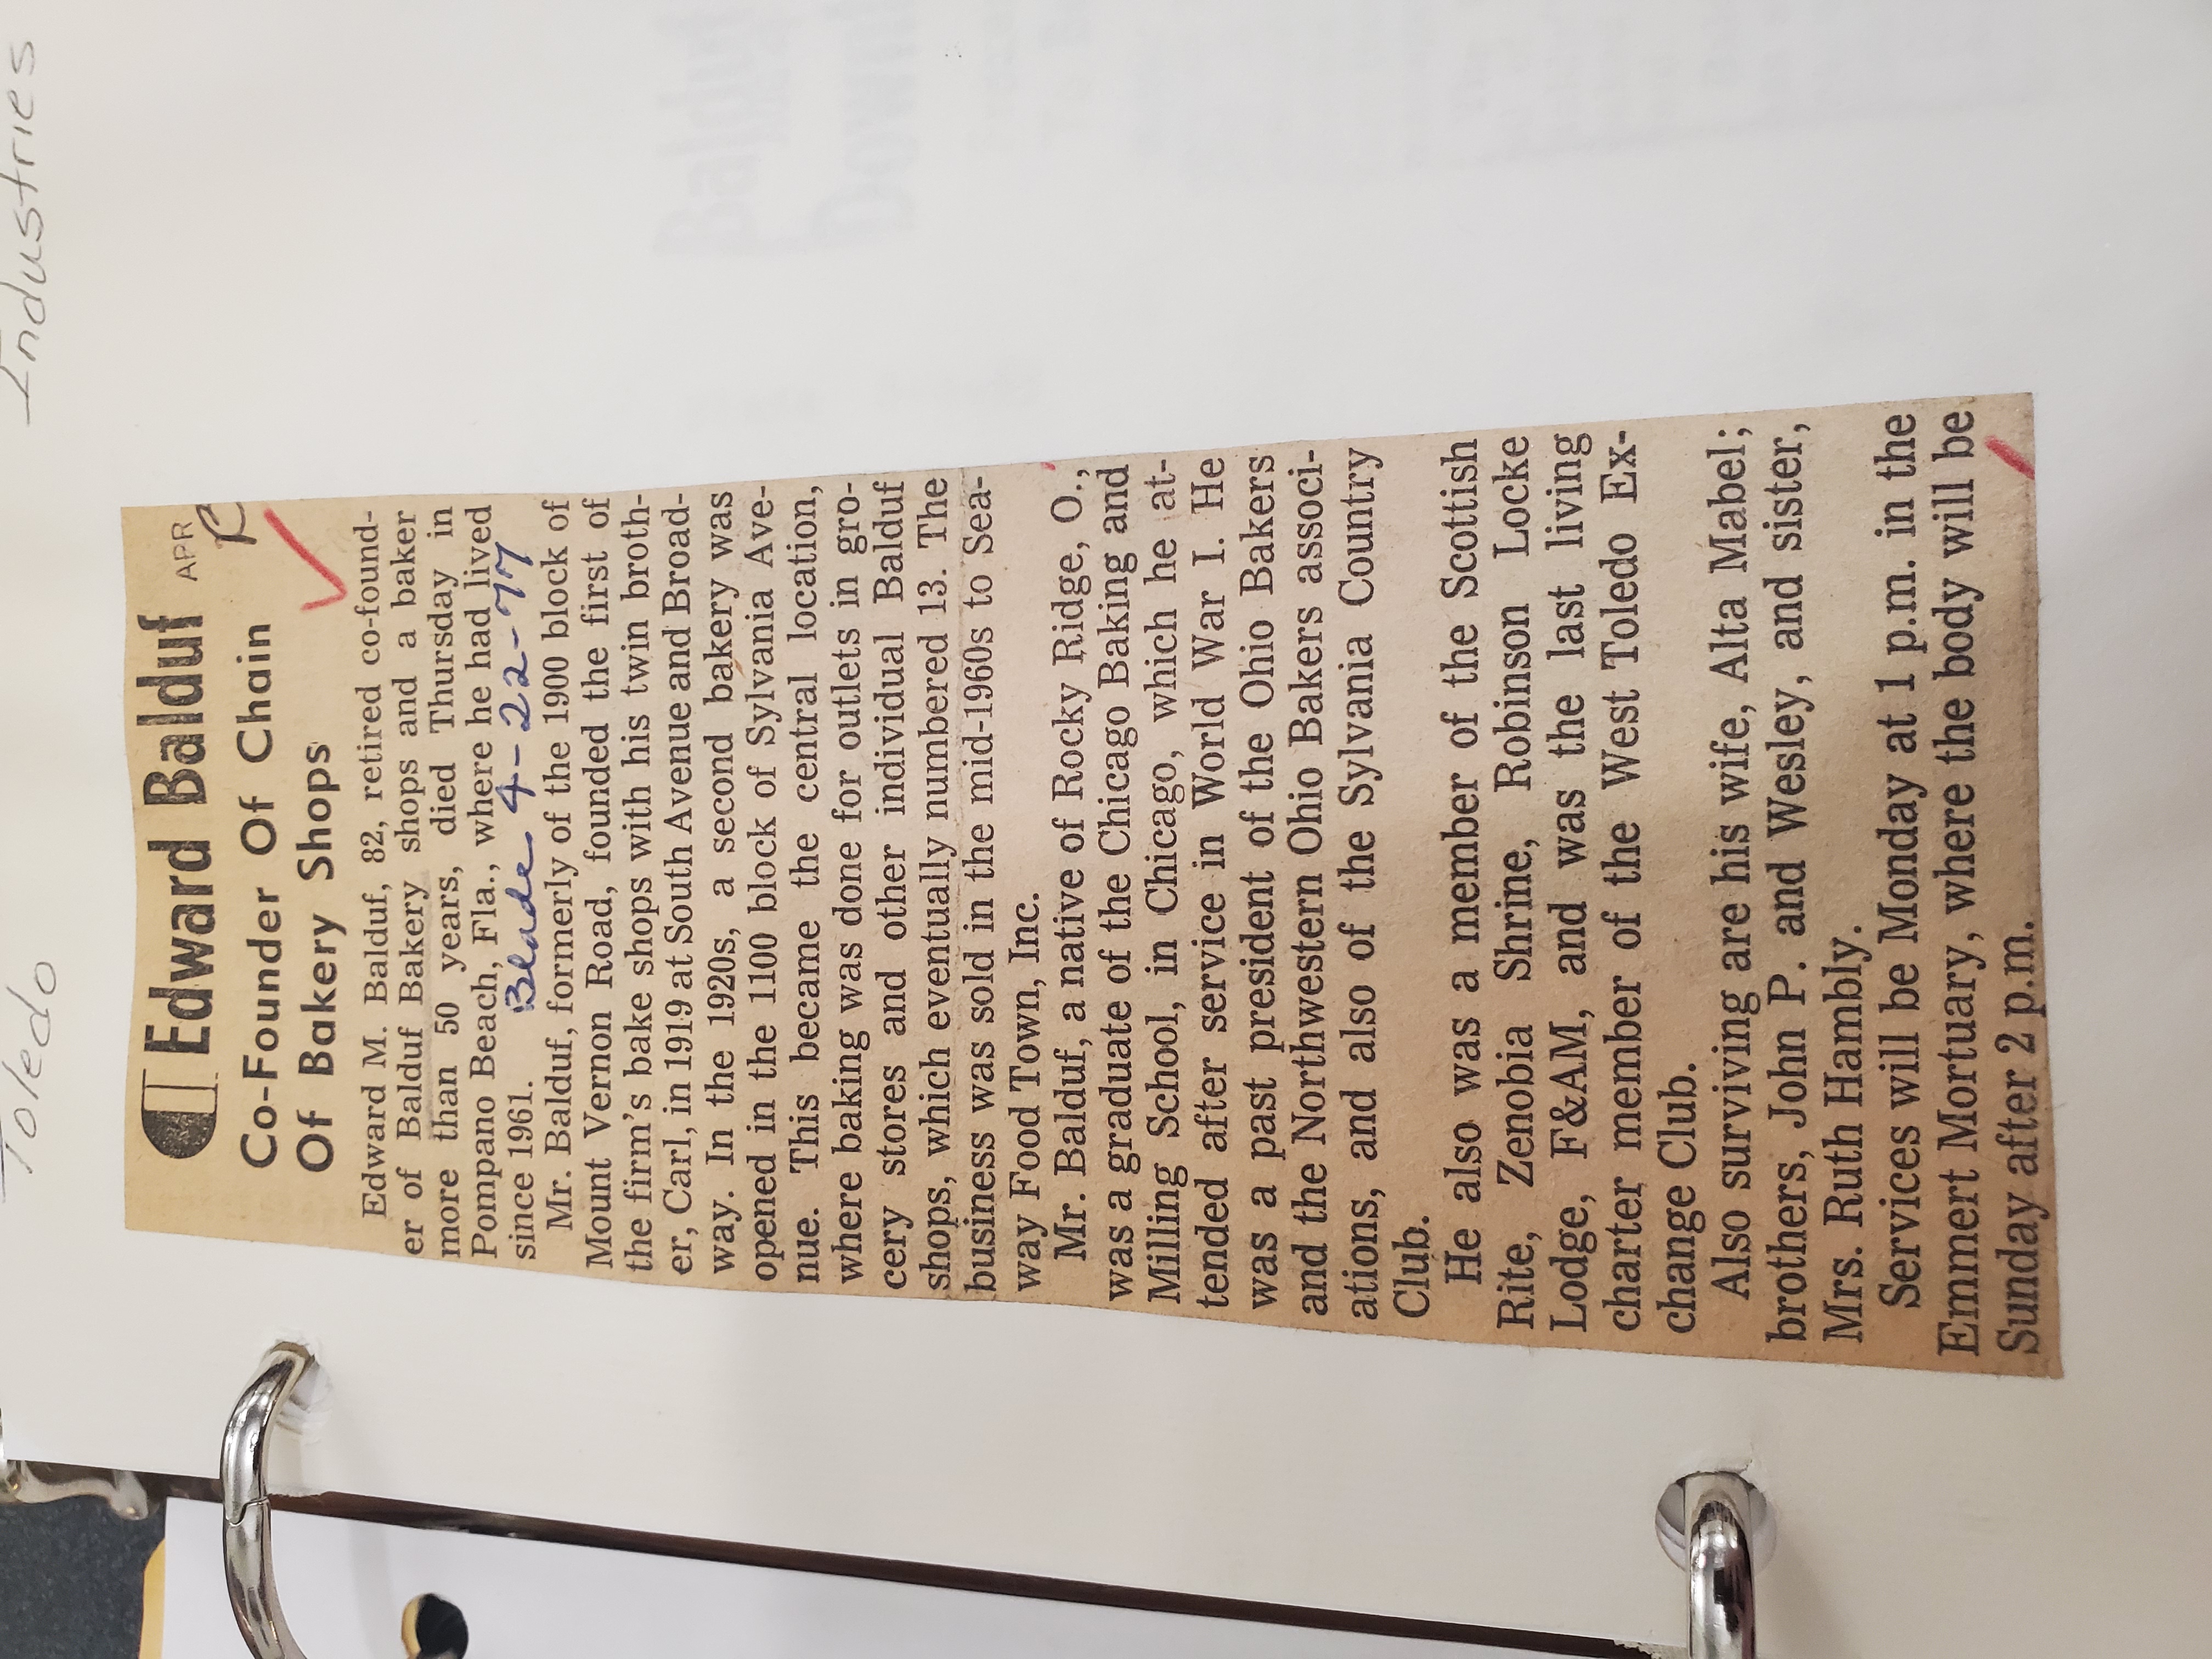 Toledo Industries
Edward Balduf
APR
Co-Founder Of Chain
Of Bakery Shops
Edward M. Balduf, 82, retired co-found-
er of Balduf Bakery shops and a baker
more than 50 years, died Thursday in
Pompano Beach, Fla., where he had lived
since 1961.
Blade 4-22-77
Mr. Balduf, formerly of the 1900 block of
Mount Vernon Road, founded the first of
the firm's bake shops with his twin broth-
er, Carl, in 1919 at South Avenue and Broad-
way. In the 1920s, a second bakery was
opened in the 1100 block of Sylvania Ave-
nue. This became the central location,
where baking was done for outlets in gro-
cery stores and other individual Balduf
shops, which eventually numbered 13. The
business was sold in the mid-1960s to Sea-
way Food Town, Inc.
Mr. Balduf, a native of Rocky Ridge, O.,
was a graduate of the Chicago Baking and
Milling School, in Chicago, which he at-
tended after service in World War I. He
was a past president of the Ohio Bakers
and the Northwestern Ohio Bakers associ-
ations, and also of the Sylvania Country
Club.
He also was a member of the Scottish
Rite, Zenobia Shrine, Robinson Locke
Lodge, F&AM, and was the last living
charter member of the West Toledo Ex-
change Club.
Also surviving are his wife, Alta Mabel;
brothers, John P. and Wesley, and sister,
Mrs. Ruth Hambly.
Services will be Monday at 1 p.m. in the
Emmert Mortuary, where the body will be
Sunday after 2 p.m.